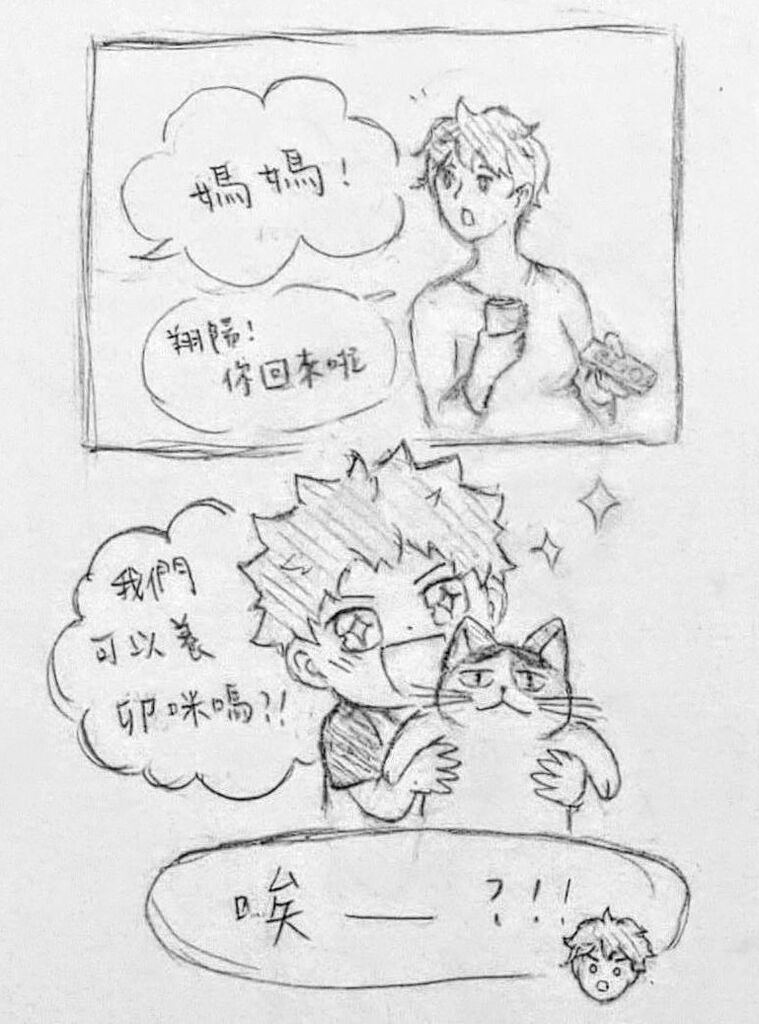 媽媽!
翔陽!
你回來啦
我們
可以養
卯咪嗎?!
唉——?!!!